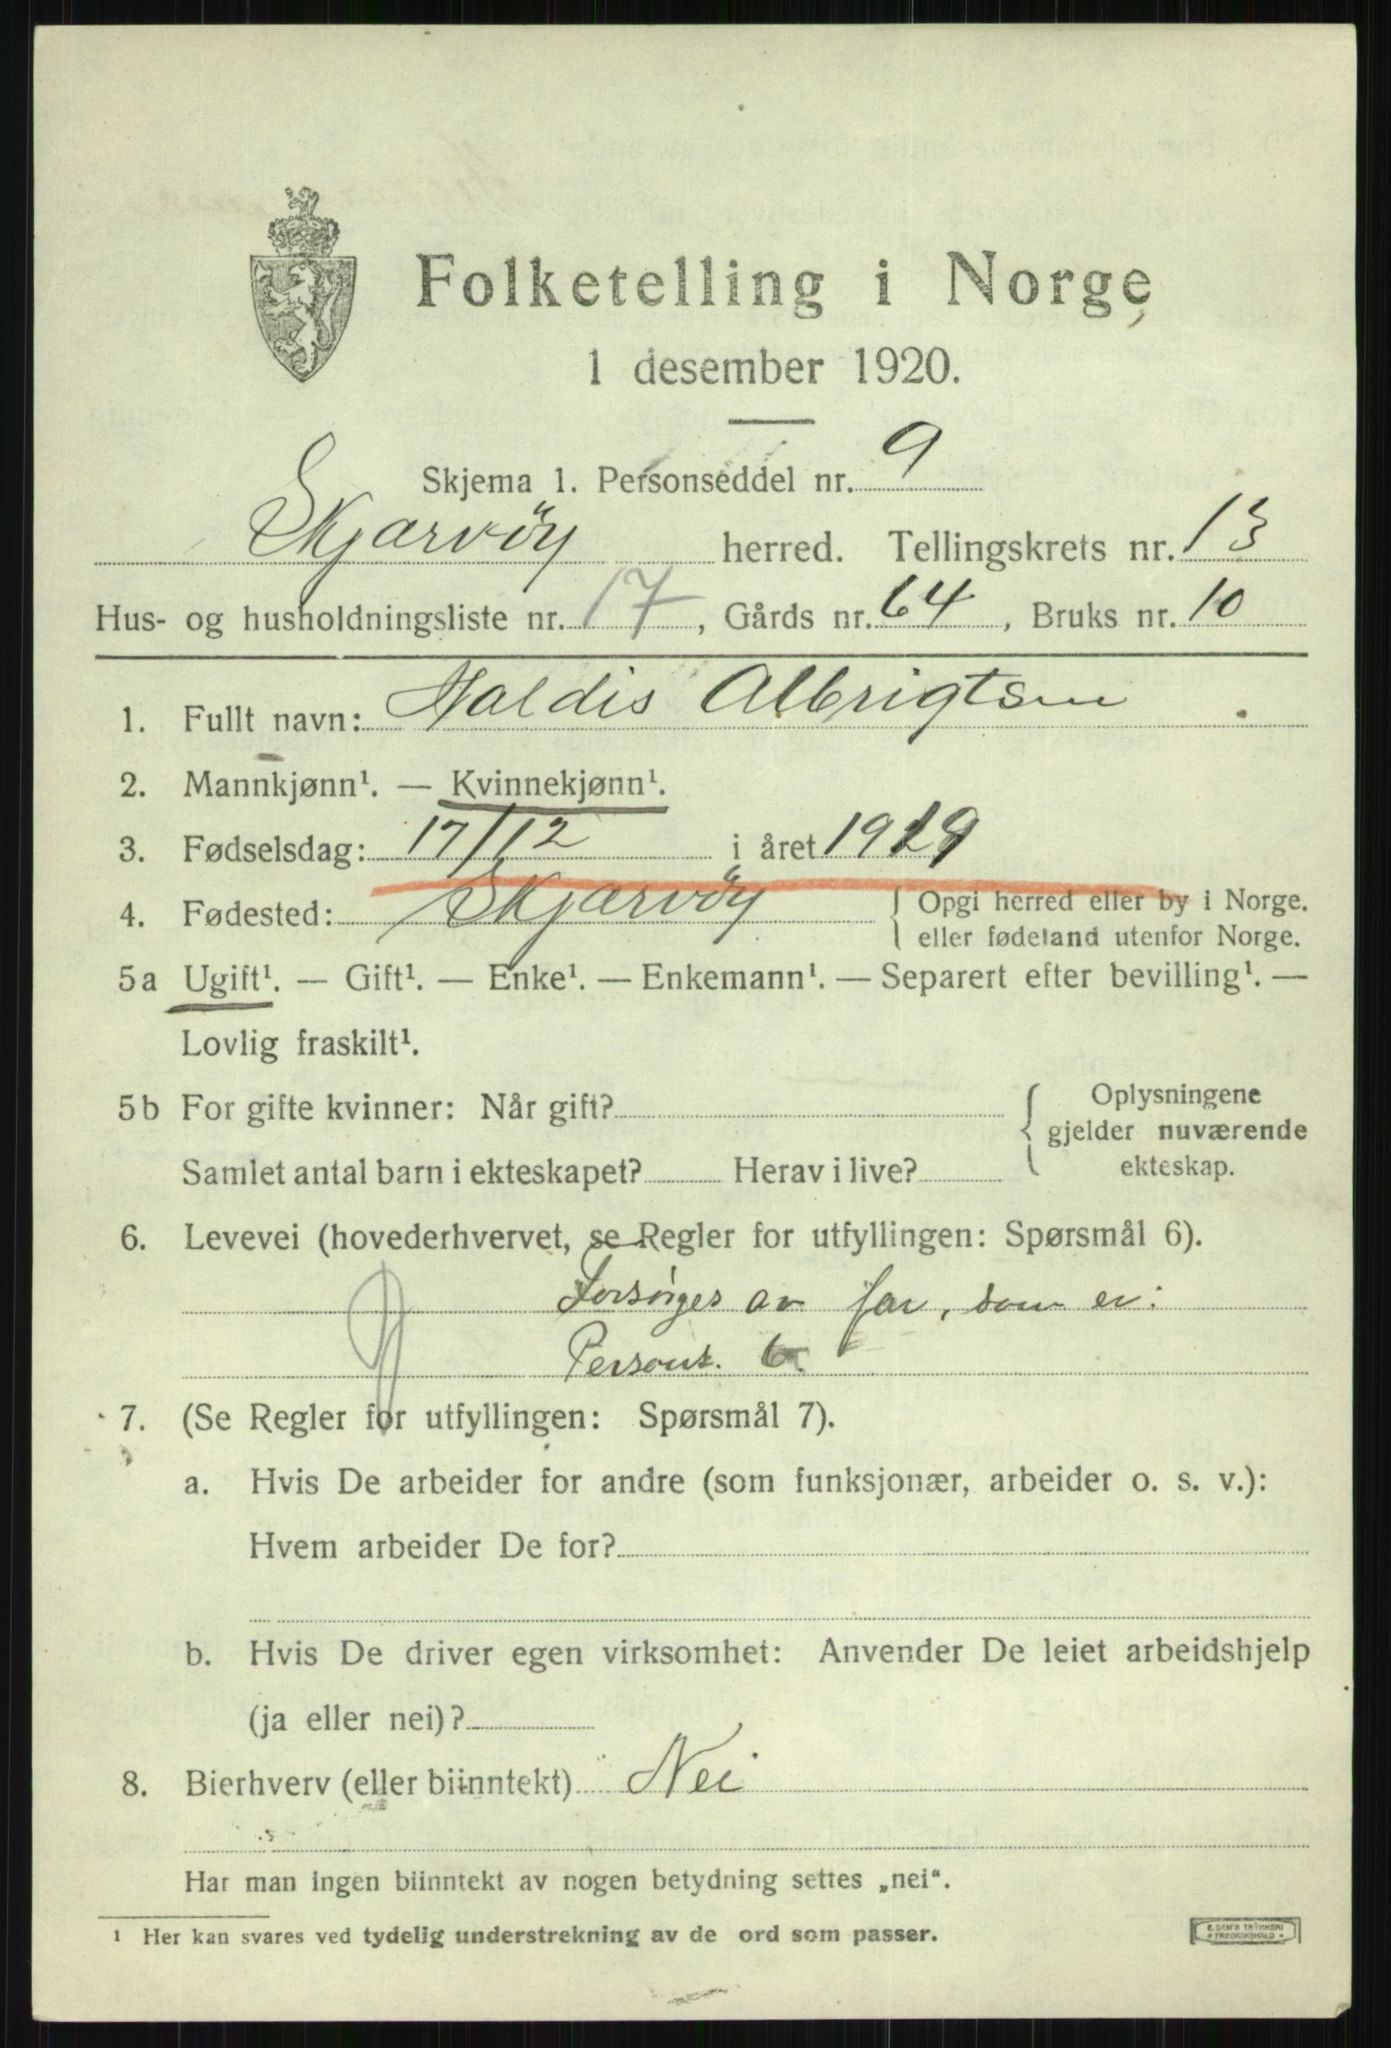 Folketelling i Norge
1 desember 1920.
Skjema 1. Personseddel nr. 9
Skjærvöy herred. Tellingskrets nr. 13
Hus- og husholdningsliste nr. 17, Gårds nr. 64, Bruks nr. 10
1. Fullt navn: Haldis Albrigtsen
2. Mannkjønn¹. — Kvinnekjønn¹.
3. Fødselsdag: 17/12 i året 1919
4. Fødested: Skjærvöy { Opgi herred eller by i Norge.
{ eller fødeland utenfor Norge.
5a Ugift¹. — Gift¹. — Enke¹. — Enkemann¹. — Separert efter bevilling¹. —
Lovlig fraskilt¹.
5b For gifte kvinner: Når gift? { Oplysningene
gjelder nuværende
Samlet antal barn i ekteskapet? Herav i live? ekteskap.
6. Levevei (hovederhvervet, se Regler for utfyllingen: Spørsmål 6).
Forsörges av far, som er:
Persons. 6
7. (Se Regler for utfyllingen: Spørsmål 7).
a. Hvis De arbeider for andre (som funksjonær, arbeider o. s. v.):
Hvem arbeider De for?
b. Hvis De driver egen virksomhet: Anvender De leiet arbeidshjelp
(ja eller nei)?
8. Bierhverv (eller biinntekt) Nei
Har man ingen biinntekt av nogen betydning settes „nei“.
¹ Her kan svares ved tydelig understrekning av de ord som passer.
E. SEM'S TRYKKERI
* FREDRIKSHALD *